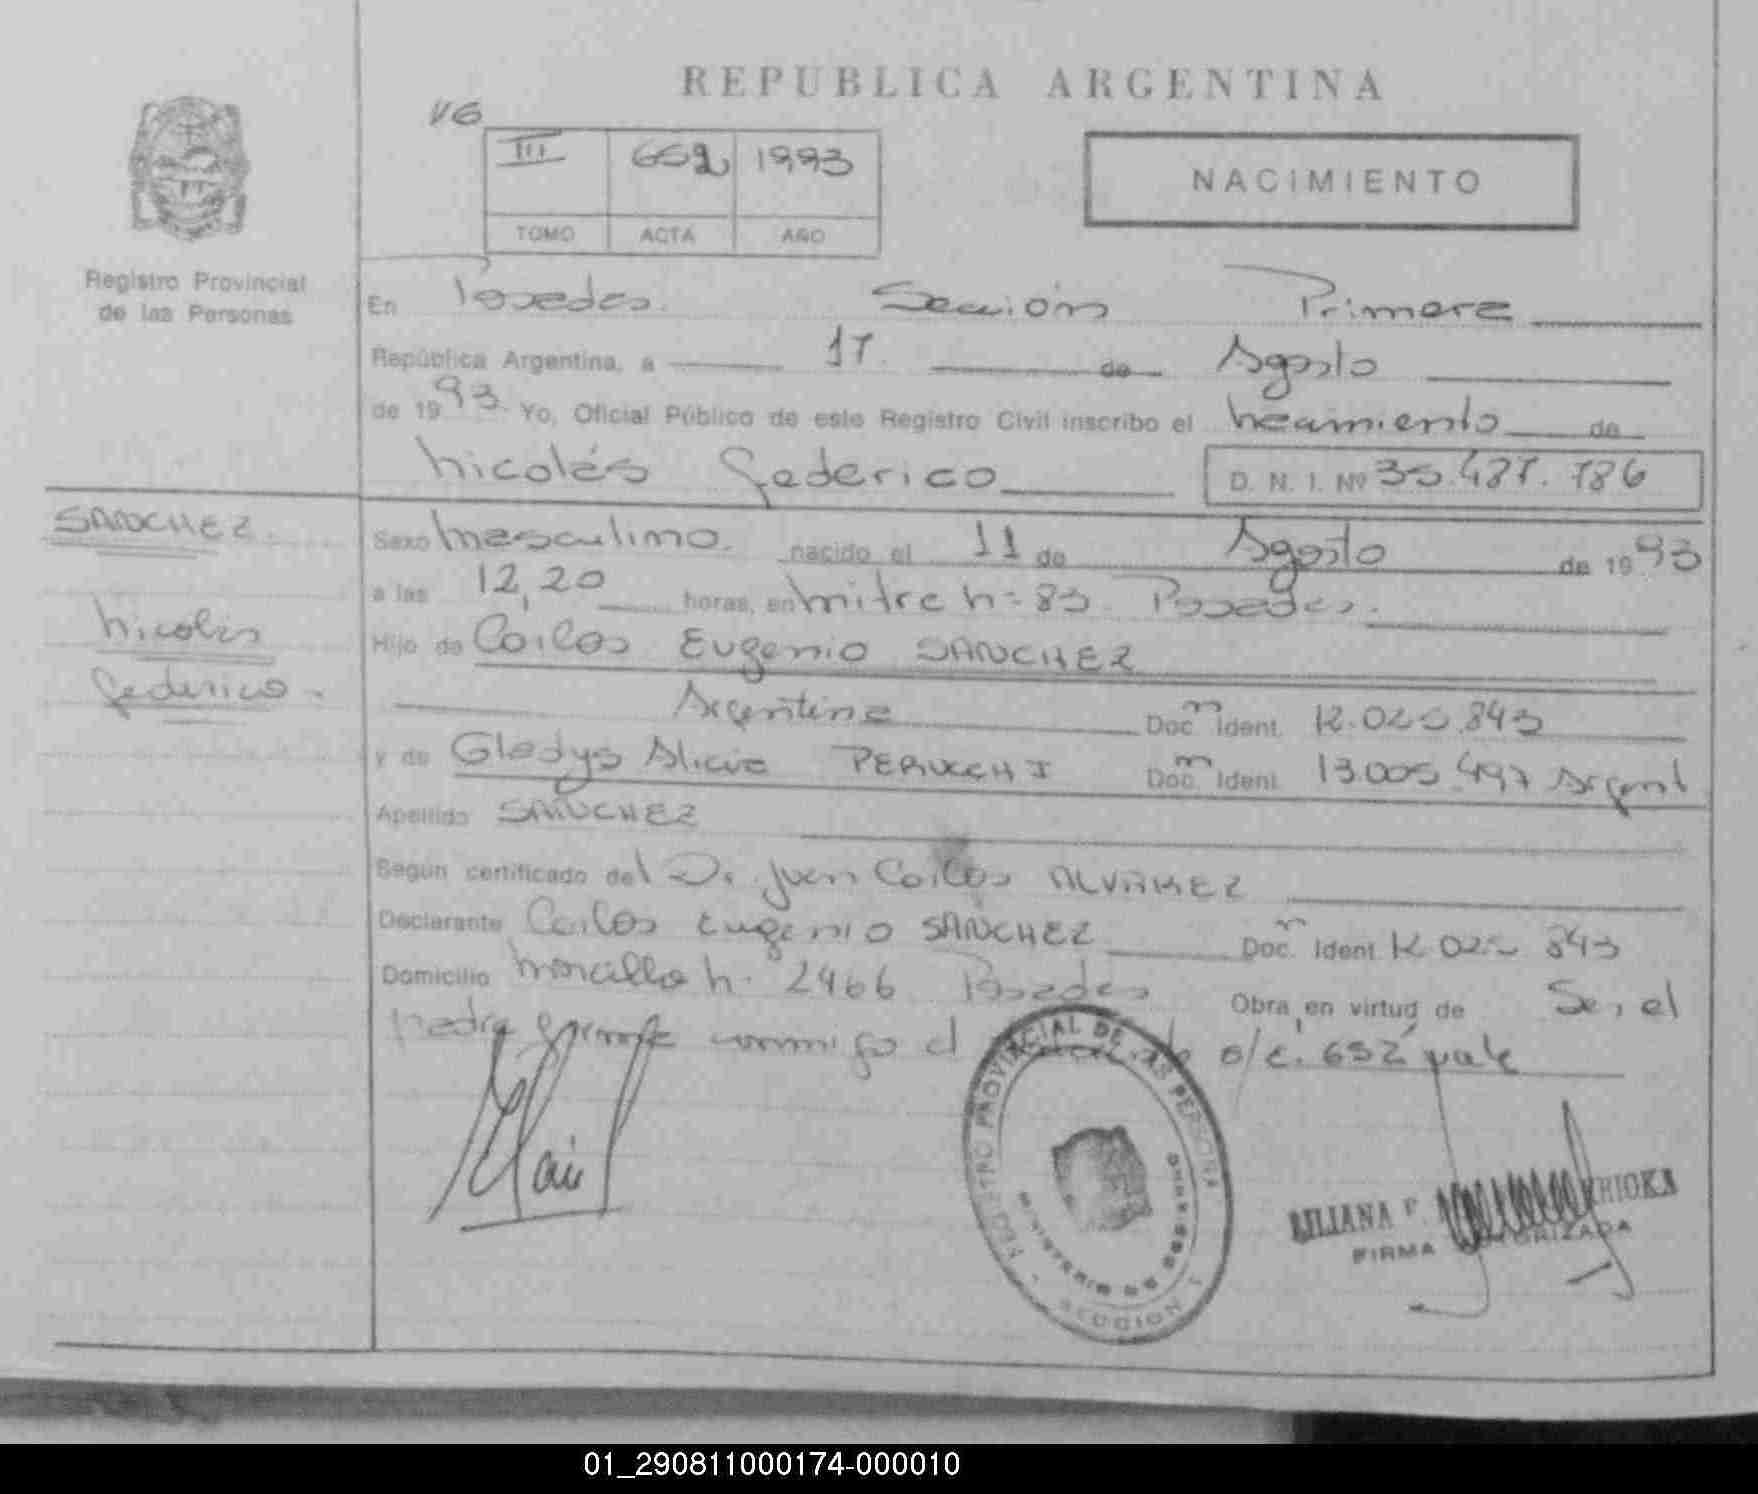 REPUBLICA ARGENTINA
VG
III 652 1993
TOMO ACTA AÑO
NACIMIENTO
Registro Provincial
de las Personas
En Posadas. Sección Primera
República Argentina, a 17. de Agosto
de 1993. Yo, Oficial Público de este Registro Civil inscribo el nacimiento de
Nicolás Federico D. N. I. Nº 35.487.786
SANCHEZ.
Nicolás
Federico.
Sexo Masculino. nacido el 11 de Agosto de 1993
a las 12,20 horas, en Mitre Nº 83. Posadas.
Hijo de Carlos Eugenio SANCHEZ
Argentina Doc. Ident. 12.025.843
y de Gladys Alicia PERUCCHI Doc. Ident. 13.005.497 Argent
Apellido SANCHEZ
Según certificado del Dr. Juan Carlos ALVAREZ
Declarante Carlos Eugenio SANCHEZ Doc. Ident. 12.025 843
Domicilio N. 2466 Posadas Obra en virtud de Ser el
padre firmante conmigo el o/c. 652 vale
REGISTRO PROVINCIAL DE LAS PERSONAS
MINISTERIO DE GOBIERNO
SECCION 1
LILIANA
FIRMA AUTORIZADA
01_290811000174-000010